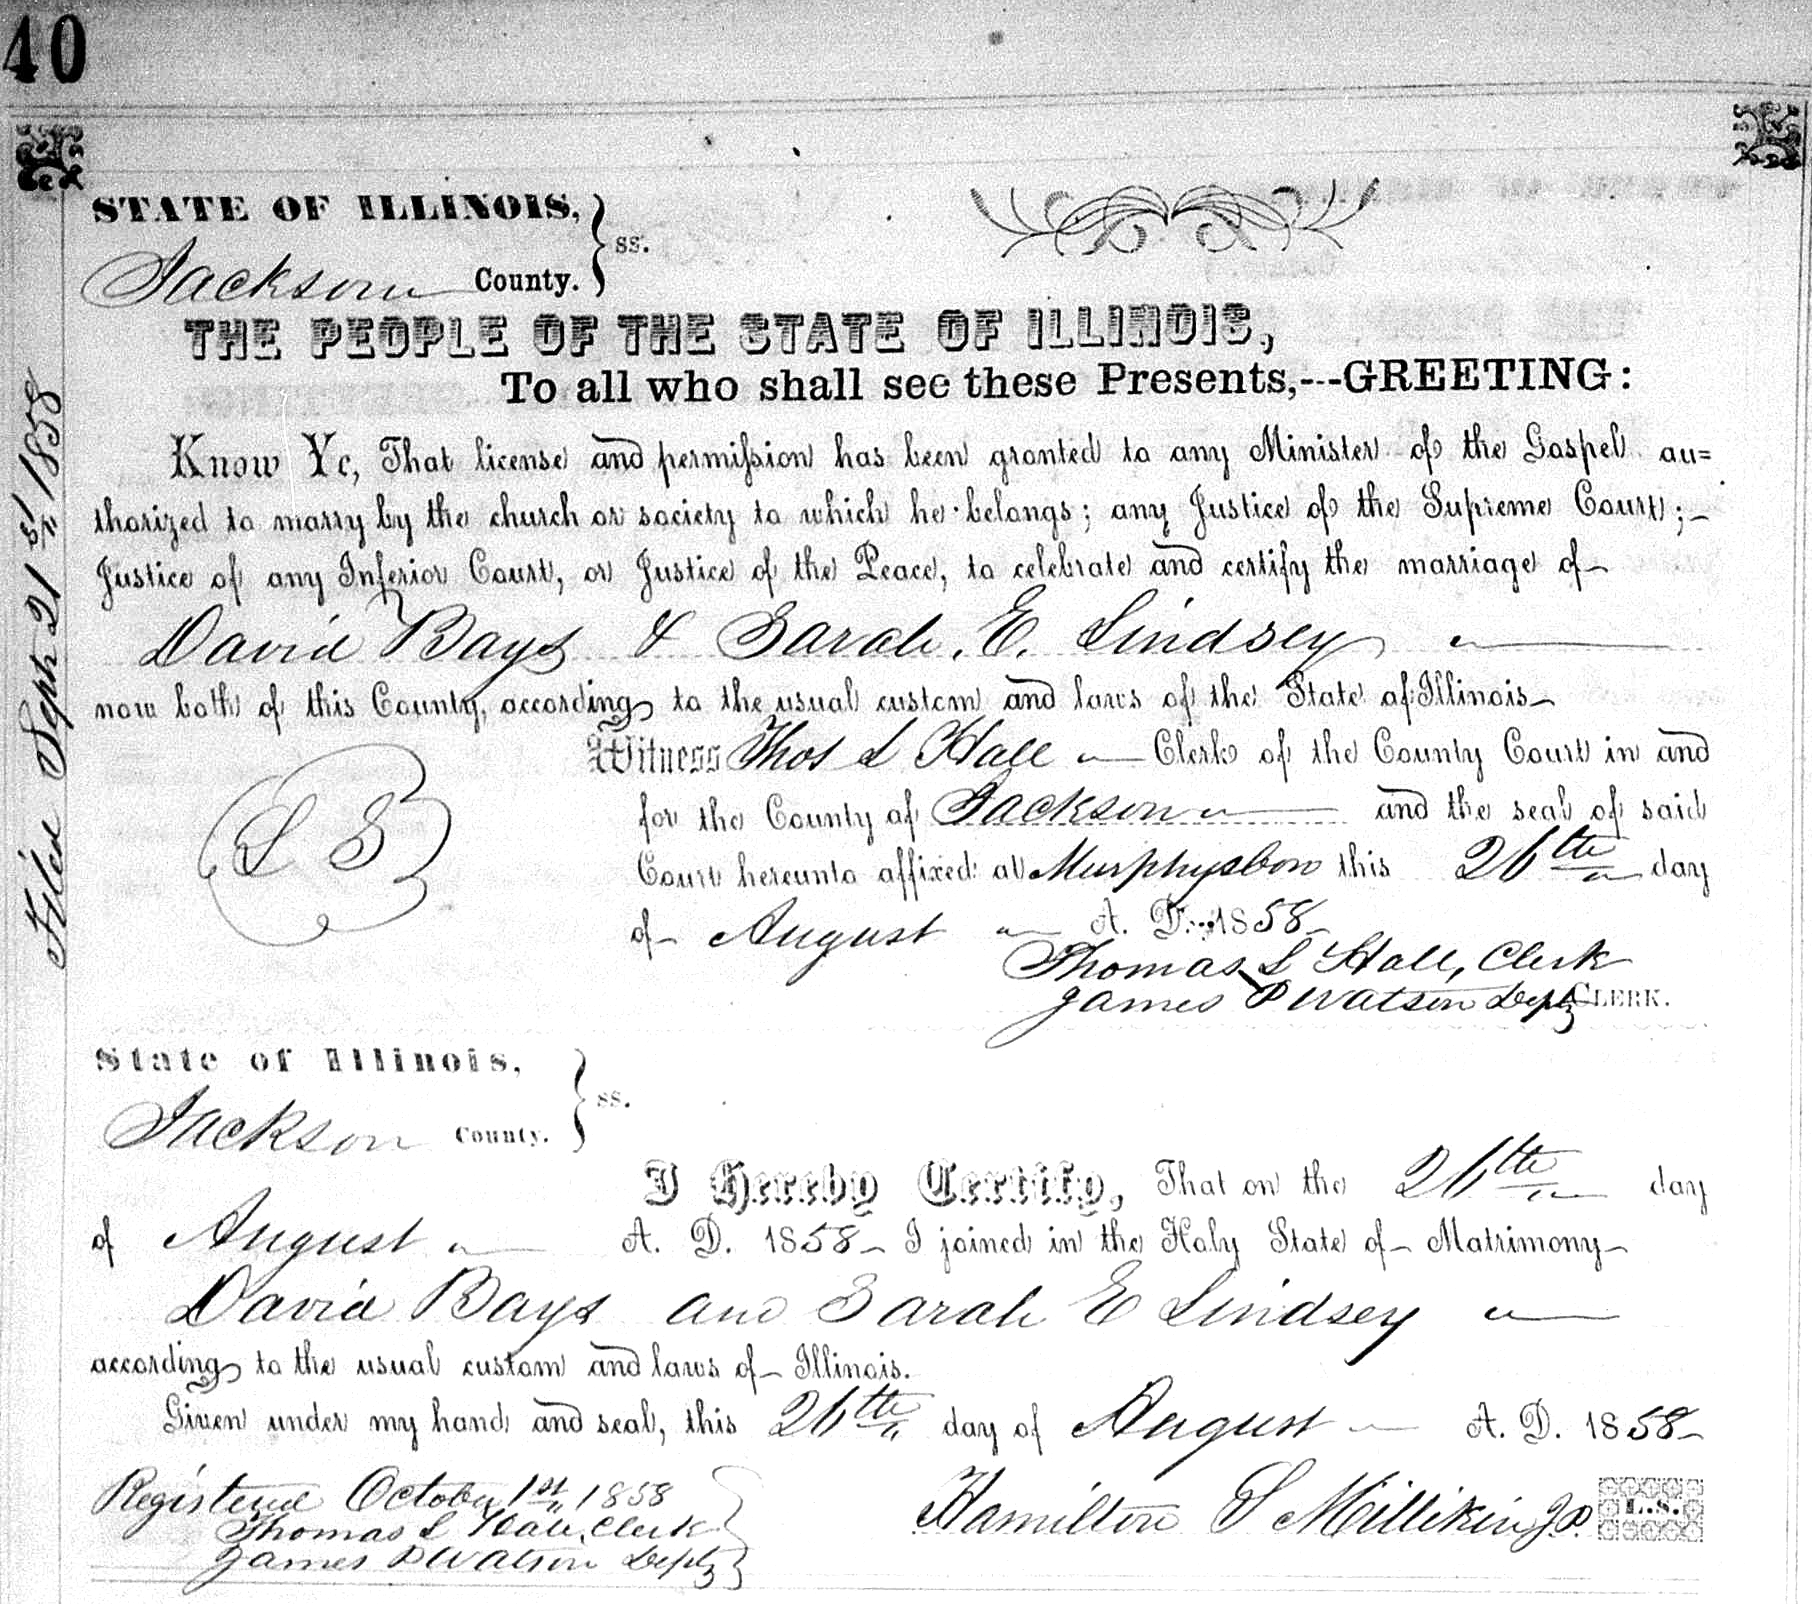 40
STATE OF ILLINOIS,
Jackson County. } ss.
THE PEOPLE OF THE STATE OF ILLINOIS,
To all who shall see these Presents,---GREETING:
Know Ye, That license and permission has been granted to any Minister of the Gospel au=
thorized to marry by the church or society to which he belongs; any Justice of the Supreme Court;
Justice of any Inferior Court, or Justice of the Peace, to celebrate and certify the marriage of
David Bays & Sarah. E. Lindsey
now both of this County, according to the usual custom and laws of the State of Illinois
Witness Thos L Hall Clerk of the County Court in and
for the County of Jackson and the seal of said
L S
Court hereunto affixed at Murphysboro this 26th day
of August A. D. 1858
Thomas L Hall, Clerk
James P Watson Depty CLERK.
Filed Sept 21st 1858
State of Illinois,
Jackson County. } ss.
I Hereby Certify, That on the 26th day
of August A. D. 1858 I joined in the Holy State of Matrimony
David Bays and Sarah E Lindsey
according to the usual custom and laws of Illinois.
Given under my hand and seal, this 26th day of August A. D. 1858
Registered October 1st 1858
Thomas L Hall, Clerk
James P Watson Depty
Hamilton S Millikin J.P. L.S.